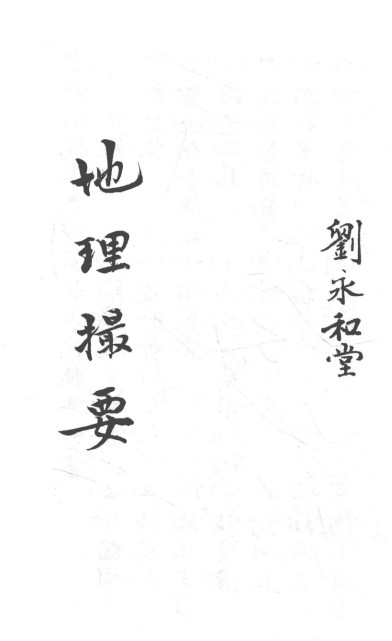 劉永和堂
地理撮要